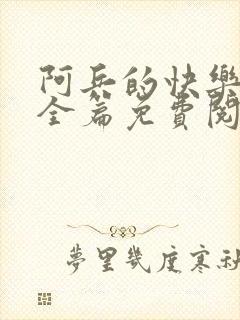 阿兵的快樂
全篇免費閱
夢里幾度寒秋